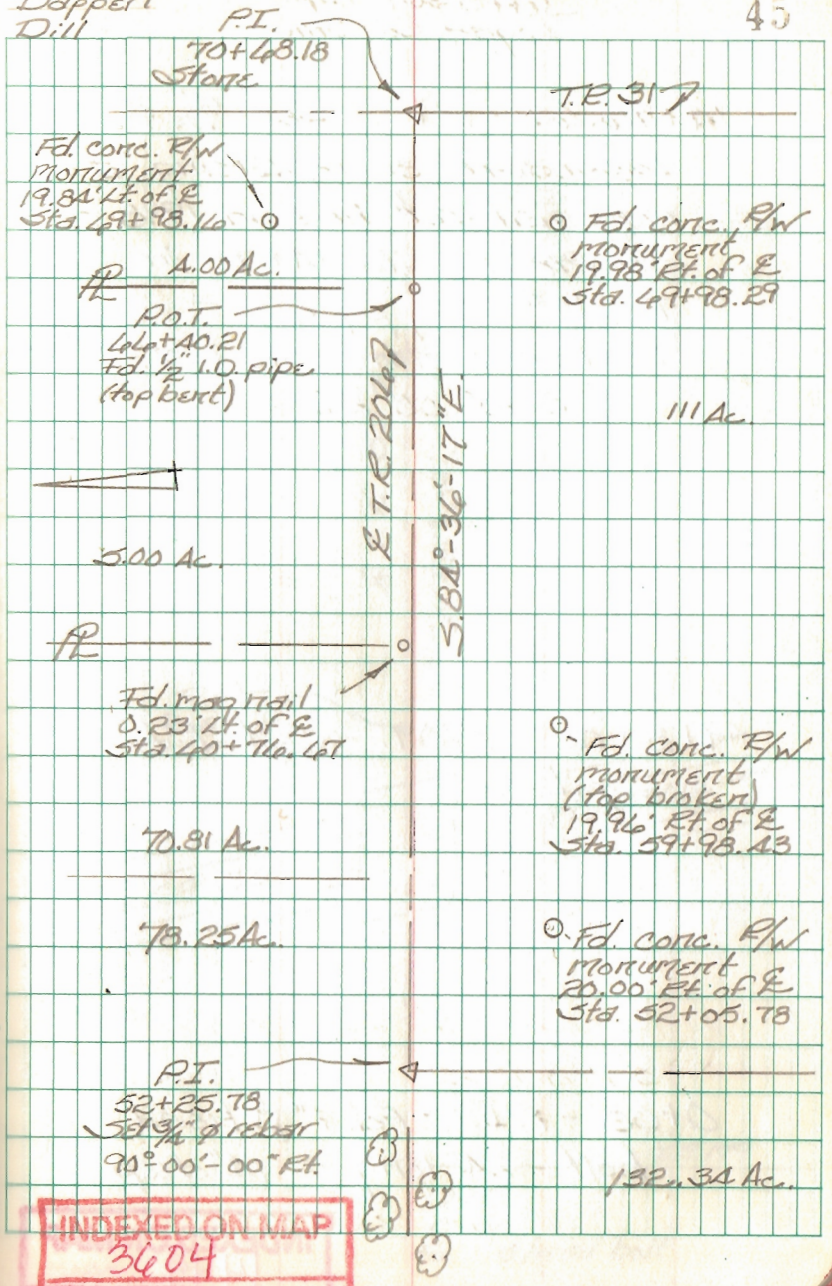 Dappert
Dill
45
P.I.
70+68.18
Stone
T.R. 317
Fd. conc. R/W
monument
19.84' Lt. of ℄
Sta. 69+98.16
Fd. conc. R/W
monument
19.98' Rt. of ℄
Sta. 69+98.29
4.00 Ac.
PL
P.O.T.
66+40.21
Fd. 1/2" I.D. pipe
(top bent)
111 Ac.
℄ T.R. 2067
S.84°-36'-17"E.
5.00 Ac.
PL
Fd. mag nail
0.23' Lt. of ℄
Sta. 60+76.67
Fd. conc. R/W
monument
(top broken)
19.96' Rt. of ℄
Sta. 59+98.43
70.81 Ac.
78.25 Ac.
Fd. conc. R/W
monument
20.00' Rt. of ℄
Sta. 52+05.78
P.I.
52+25.78
Set 3/4" ø rebar
90°-00'-00" Rt.
132.34 Ac.
INDEXED ON MAP
3604